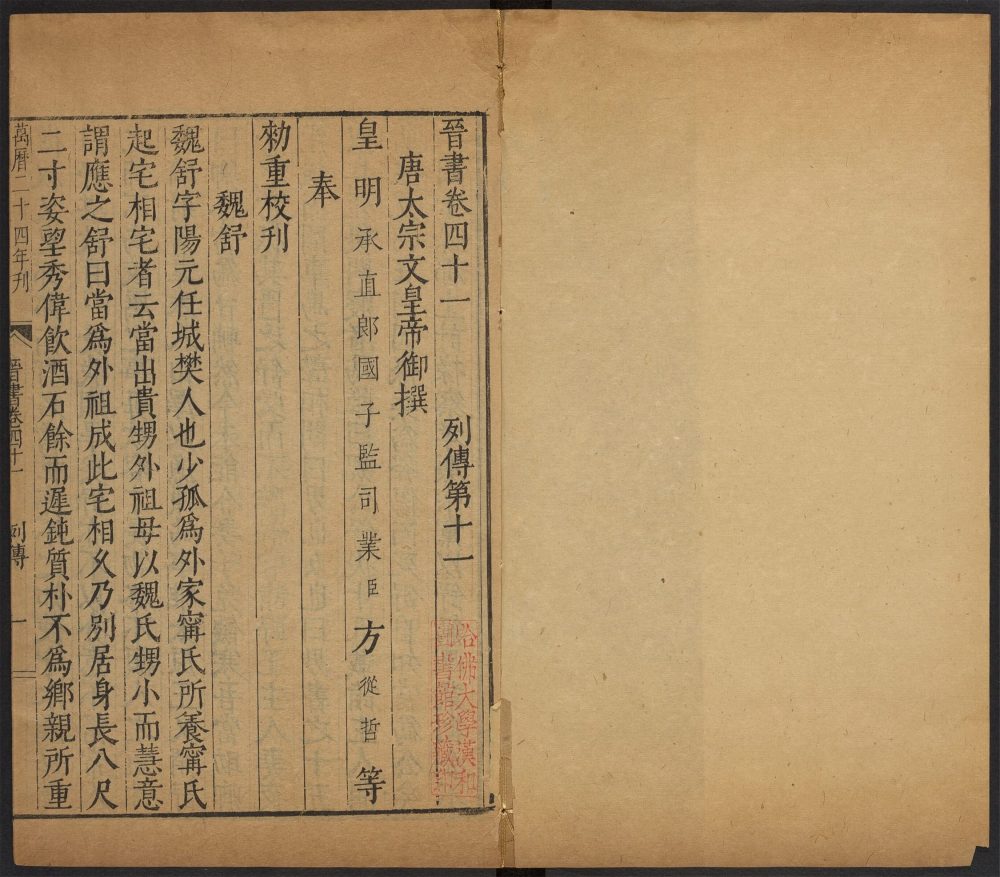 晉書卷四十一 列傳第十一
唐太宗文皇帝御撰
皇明承直郎國子監司業臣方從哲等
奉
勑重校刊
魏舒
魏舒字陽元任城樊人也少孤爲外家甯氏所養甯氏
起宅相宅者云當出貴甥外祖母以魏氏甥小而慧意
謂應之舒曰當爲外祖成此宅相乆乃別居身長八尺
二寸姿望秀偉飮酒石餘而遲鈍質朴不爲鄉親所重
萬曆二十四年刊 晉書卷四十一 列傳 一
哈佛大學漢和
圖書館珍藏印